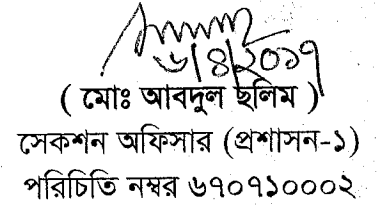 ৬/৪/২০১৭
( মোঃ আবদুল ছলিম )
সেকশন অফিসার (প্রশাসন-১)
পরিচিতি নম্বর ৬৭০৭১০০০২